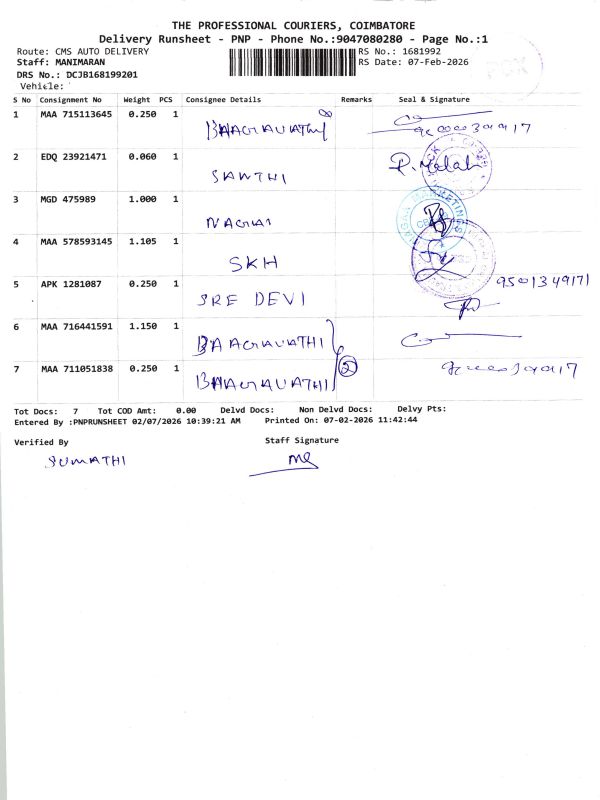 THE PROFESSIONAL COURIERS, COIMBATORE
Delivery Runsheet - PNP - Phone No.:9047080280 - Page No.:1
Route: CMS AUTO DELIVERY RS No.: 1681992
Staff: MANIMARAN RS Date: 07-Feb-2026
DRS No.: DCJB168199201
Vehicle:
S No Consignment No Weight PCS Consignee Details Remarks Seal & Signature
1 MAA 715113645 0.250 1 BHAGAVATHY
2 EDQ 23921471 0.060 1 SANTHI
3 MGD 475989 1.000 1
4 MAA 578593145 1.105 1 SKH
5 APK 1281087 0.250 1 SRE DEVI 9501349171
6 MAA 716441591 1.150 1 BHAGAVATHI
7 MAA 711051838 0.250 1 BHAGAVATHI 2
Tot Docs: 7 Tot COD Amt: 0.00 Delvd Docs: Non Delvd Docs: Delvy Pts:
Entered By :PNPRUNSHEET 02/07/2026 10:39:21 AM Printed On: 07-02-2026 11:42:44
Verified By Staff Signature
SUMATHI